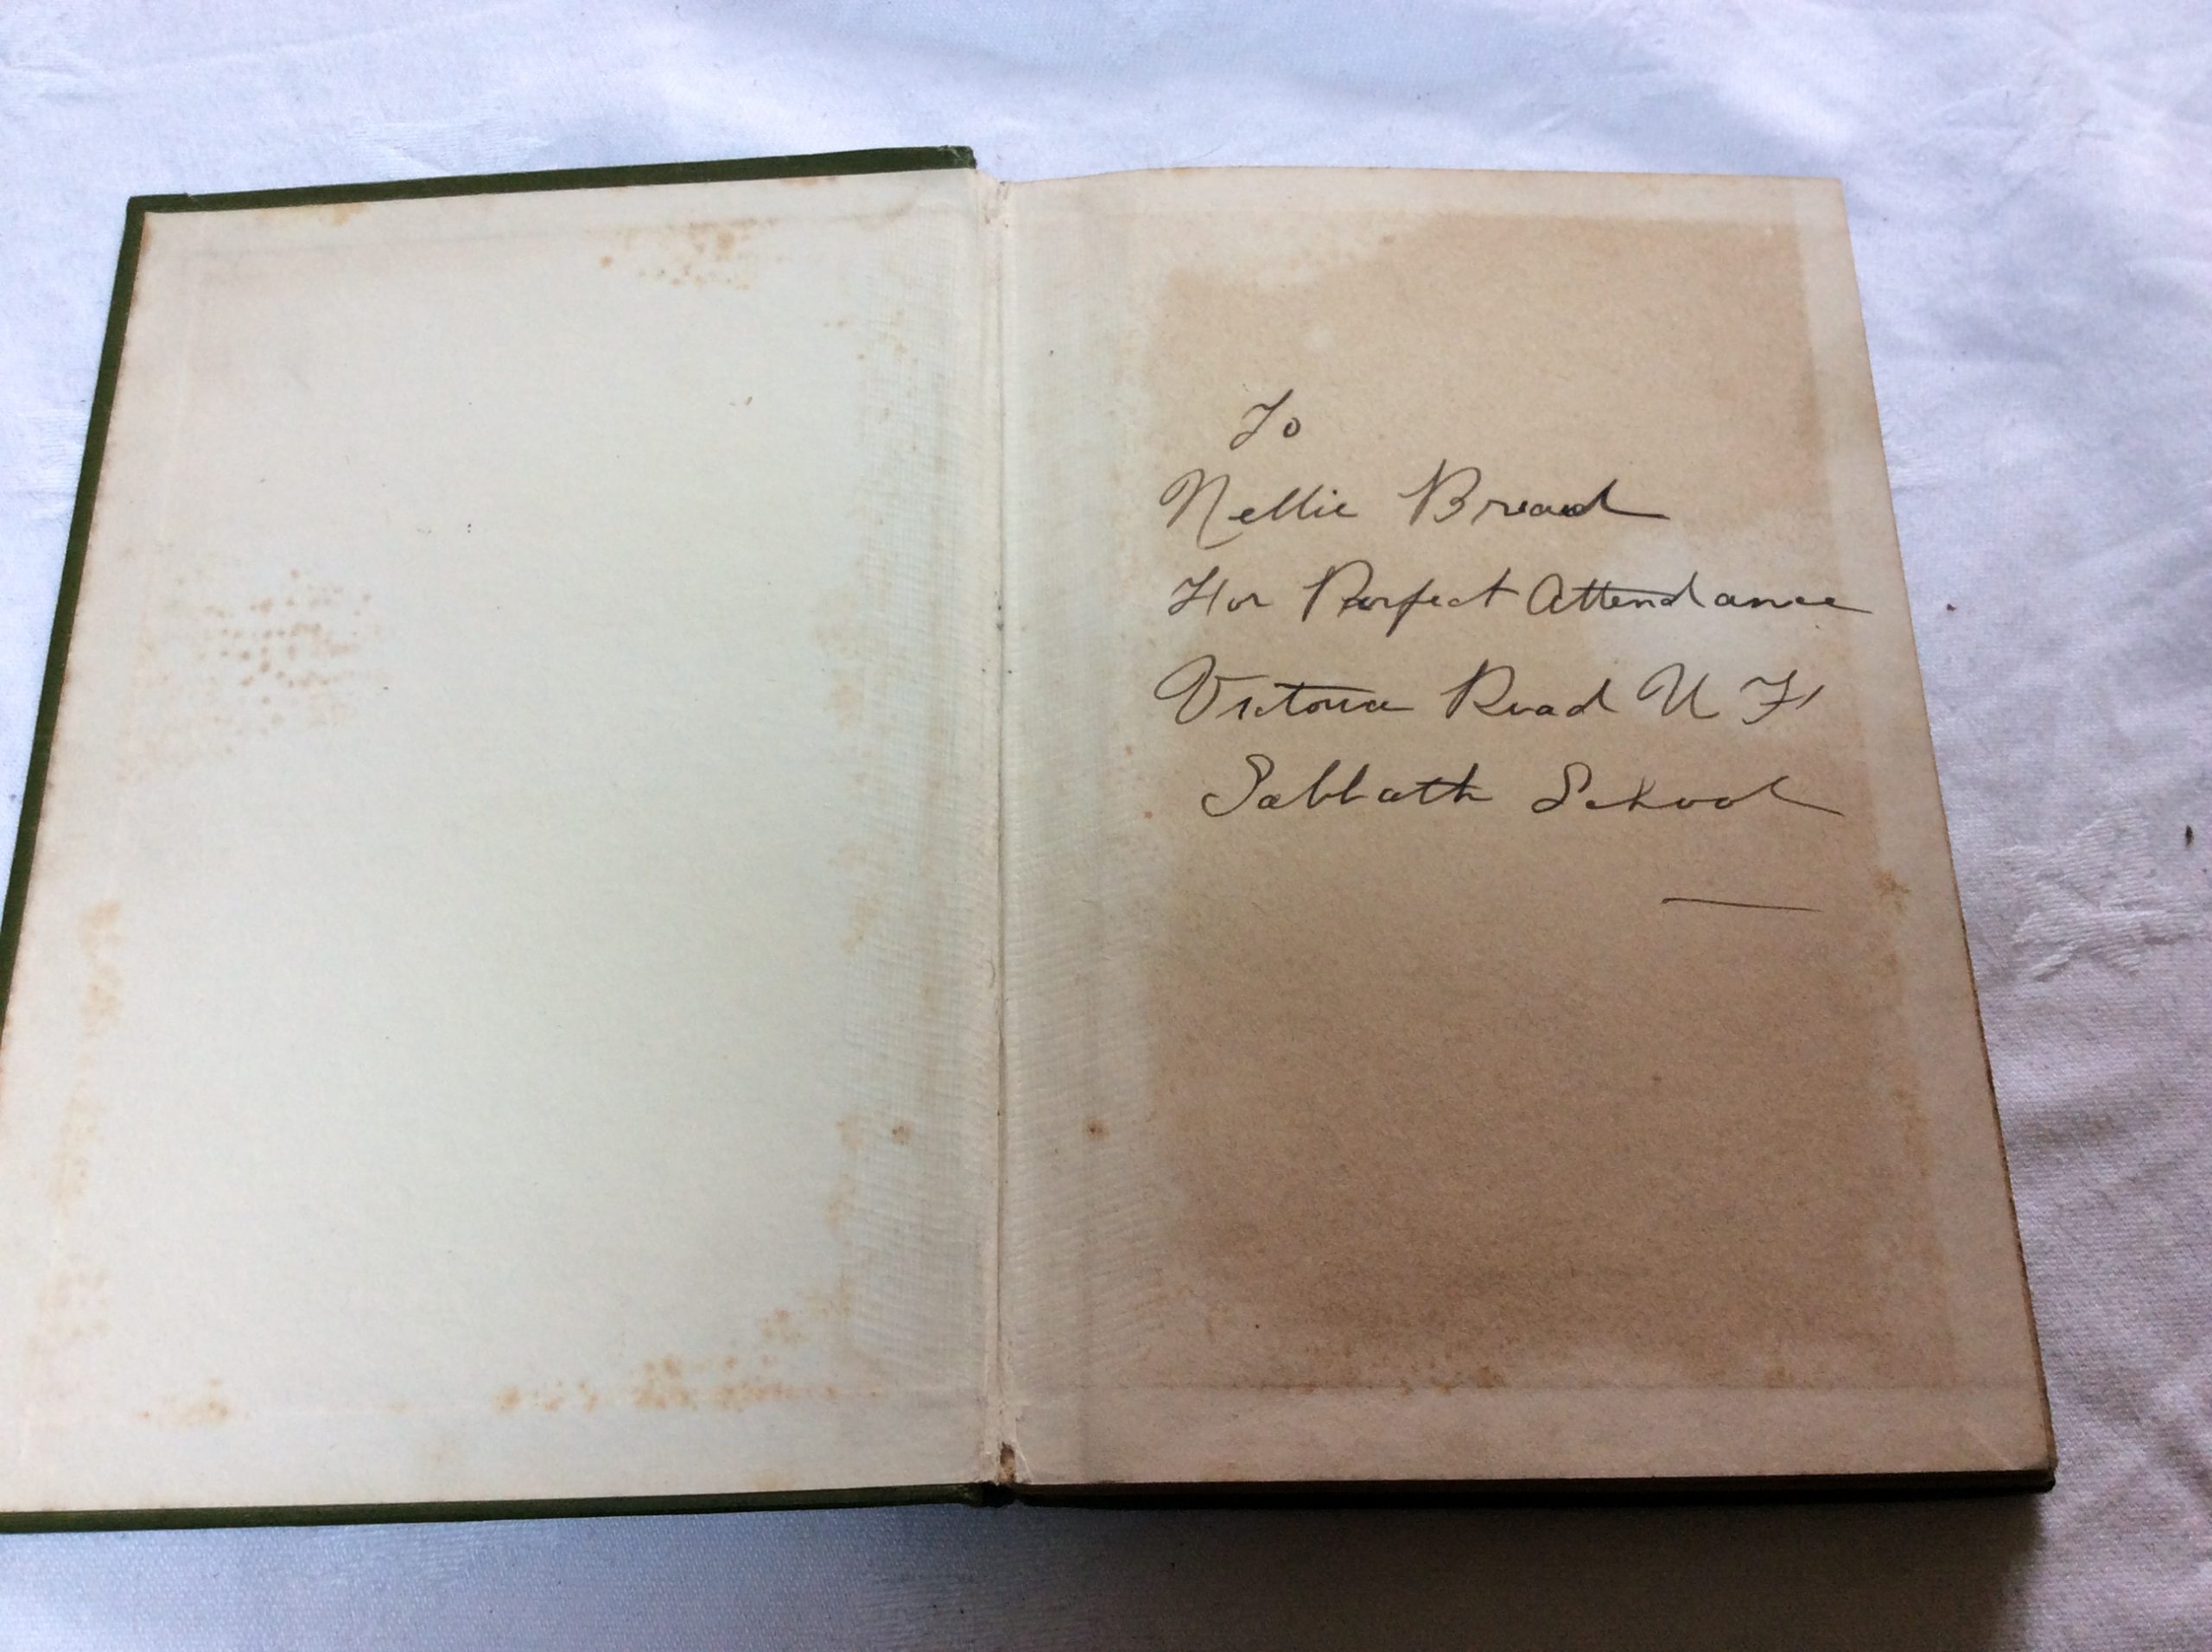 To
Nellie Bread
For Perfect Attendance
Victoria Road U F
Sabbath School